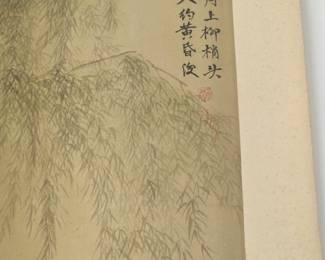 月上柳梢头
人约黄昏后